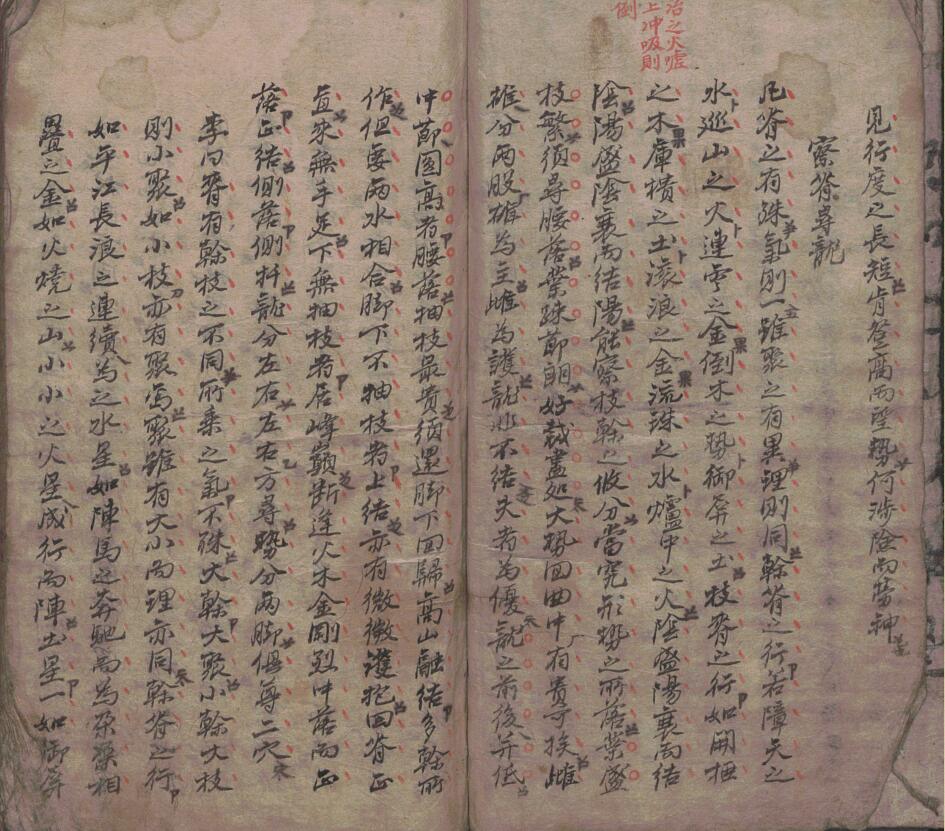 治之火嘘
上冲吸則
倒
見行度之長短肯登高而望勢何涉險而勞神
察脊尋龍
凡脊之有殊氣則一雖聚之有異理則同幹脊之行若障天之
水巡山之火連雲之金倒木之勢御屏之土枝脊之行如開
之木庫横之土滚浪之金流珠之水爐中之火陰盛陽衰而結
陰陽盛陰衰而結陽能察枝幹之攸分當究形勢之所落葉盛
枝繁須尋腰落葉踈節朗好裁盡処大勢回曲中有貴可挨雌
雄分兩股雄為主雌為護龍水不結失者為優龍之前後并低
中節園高者腰落抽枝最貴須還脚下回歸高山融結多幹所
作但要兩水相合脚下不抽枝者上結亦有微微護抱回脊正
直來無手足下無抽枝者居峰巔断逢火木金剛烈中落而正
落正結側落側扦龍分左右左右方尋勢分兩脚俱尋二穴
李曰脊有幹枝之不同所乘之氣不殊大幹大聚小幹大枝
則小聚如小枝亦有聚焉聚雖有大小而理亦同幹脊之行
如平江長浪之連續為之水星如陣馬之奔馳而為朶朶相
疊之金如火燒之山小小之火星成行而陣土星一如御屏